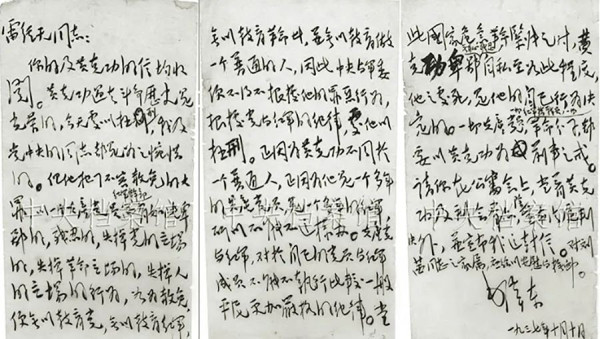 雷经天同志：
你的及黄克功的信均收
阅。黄克功过去斗争历史是
光荣的，今天处以极刑，我及
党中央的同志都是为之惋惜
的。但他犯了不容赦免的大
罪，以一个共产党员红军干
部而有如此卑鄙的，残忍的，失掉党的立场
的，失掉革命立场的，失掉人
的立场的行为，如为赦免，
便无以教育党，无以教育红军，
无以教育革命者，并无以教育做
一个普通的人，因此中央与军委
便不得不根据他的罪恶行为，
根据党与红军的纪律，处他以
极刑。正因为黄克功不同于
一个普通人，正因为他是一个多年
的共产党员，是一个多年的红军，
所以不能不这样办。共产党
与红军，对于自己的党员与红军
成员不能不执行比较一般
平民更加严格的纪律。当
此国家危急革命紧张之时，黄
克功卑鄙无耻残忍自私至如此程度，
他之处死，是他的自己行为决
定的。一切共产党员，一切红军指战员，一切革命分子，都
要以黄克功为前车之戒。
请你在公审会上，当着黄克
功及到会群众，除宣布法庭判
决外，并宣布我这封信。对刘
茜同志之家属，应给以安慰与体恤。
毛泽东
一九三七年十月十日
中央档案馆
中央档案馆
中央档案馆